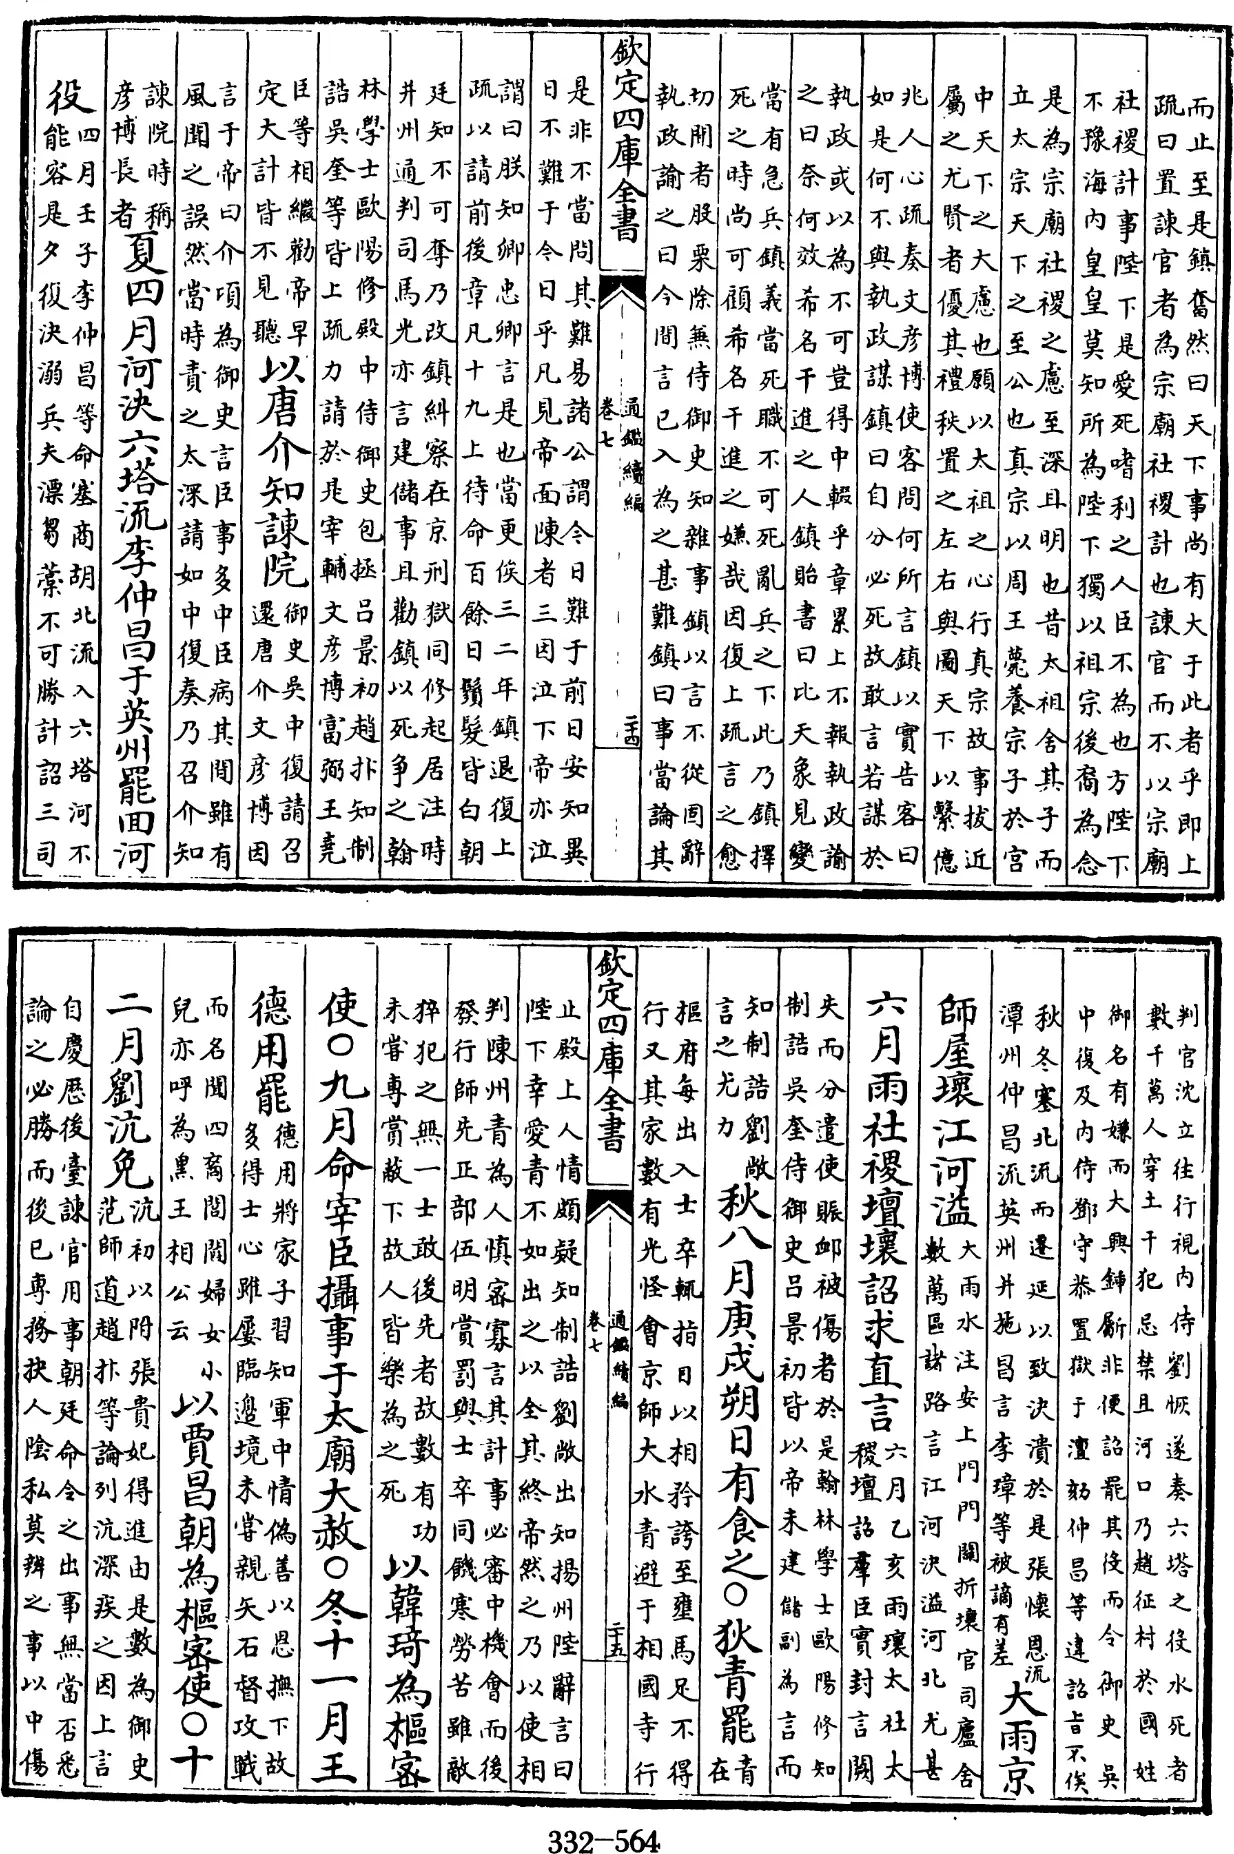 而止至是鎮奮然曰天下事尚有大于此者乎即上
疏曰置諫官者為宗廟社稷計也諫官而不以宗廟
社稷計事陛下是愛死嗜利之人臣不為也方陛下
不豫海内皇皇莫知所為陛下獨以祖宗後裔為念
是為宗廟社稷之慮至深且明也昔太祖舍其子而
立太宗天下之至公也真宗以周王薨養宗子於宫
中天下之大慮也願以太祖之心行真宗故事拔近
屬之尤賢者優其禮秩置之左右與圖天下以繫億
兆人心疏奏文彦博使客問何所言鎮以實告客曰
如是何不與執政謀鎮曰自分必死故敢言若謀於
執政或以為不可豈得中輟乎章累上不報執政諭
之曰奈何效希名干進之人鎮貽書曰比天象見變
當有急兵鎮義當死職不可死亂兵之下此乃鎮擇
死之時尚可顧希名干進之嫌哉因復上疏言之愈
切聞者股栗除兼侍御史知雜事鎮以言不從固辭
執政諭之曰今間言已入為之甚難鎮曰事當論其
欽定四庫全書 通鑑續編 卷七 二十四
是非不當問其難易諸公謂今日難于前日安知異
日不難于今日乎凡見帝面陳者三因泣下帝亦泣
謂曰朕知卿忠卿言是也當更俟三二年鎮退復上
疏以請前後章凡十九上待命百餘日鬚髮皆白朝
廷知不可奪乃改鎮糾察在京刑獄同修起居注時
并州通判司馬光亦言建儲事且勸鎮以死争之翰
林學士歐陽修殿中侍御史包拯吕景初趙抃知制
誥吳奎等皆上疏力請於是宰輔文彦博富弼王堯
臣等相繼勸帝早
定大計皆不見聽
以唐介知諫院
御史吳中復請召
還唐介文彦博因
言于帝曰介頃為御史言臣事多中臣病其間雖有
風聞之誤然當時責之太深請如中復奏乃召介知
諫院時稱
彦博長者
夏四月河決六塔流李仲昌于英州罷回河
役
四月壬子李仲昌等命塞商胡北流入六塔河不
能容是夕復決溺兵夫漂芻藁不可勝計詔三司
判官沈立往行視内侍劉恢遂奏六塔之役水死者
數千萬人穿土干犯忌禁且河口乃趙征村於國姓
御名有嫌而大興鍤斸非便詔罷其役而令御史吳
中復及内侍鄧守恭置獄于澶劾仲昌等違詔旨不俟
秋冬塞北流而遷延以致決潰於是張懷恩流
潭州仲昌流英州并施昌言李璋等被謫有差
大雨京
師屋壞江河溢
大雨水注安上門門關折壞官司廬舍
數萬區諸路言江河決溢河北尤甚
六月雨社稷壇壞詔求直言
六月乙亥雨壞太社太
稷壇詔羣臣實封言闕
失而分遣使賑卹被傷者於是翰林學士歐陽修知
制誥吳奎侍御史吕景初皆以帝未建儲副為言而
知制誥劉敞
言之尤力
秋八月庚戌朔日有食之〇狄青罷
青
在
樞府每出入士卒輒指目以相矜誇至壅馬足不得
行又其家數有光怪會京師大水青避于相國寺行
欽定四庫全書 通鑑續編 卷七 二十五
止殿上人情頗疑知制誥劉敞出知揚州陛辭言曰
陛下幸愛青不如出之以全其終帝然之乃以使相
判陳州青為人慎密寡言其計事必審中機會而後
發行師先正部伍明賞罰與士卒同饑寒勞苦雖敵
猝犯之無一士敢後先者故數有功
未嘗專賞蔽下故人皆樂為之死
以韓琦為樞密
使〇九月命宰臣攝事于太廟大赦〇冬十一月王
德用罷
德用將家子習知軍中情偽善以恩撫下故
多得士心雖屢臨邉境未嘗親矢石督攻戰
而名聞四裔閭閻婦女小
兒亦呼為黑王相公云
以賈昌朝為樞密使〇十
二月劉沆免
沆初以附張貴妃得進由是數為御史
范師道趙抃等論列沆深疾之因上言
自慶歷後臺諫官用事朝廷命令之出事無當否悉
論之必勝而後已專務抉人陰私莫辨之事以中傷
332-564